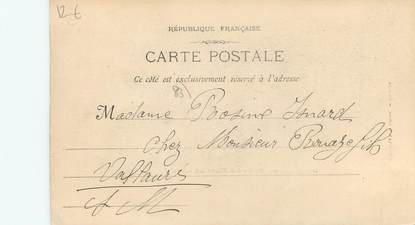 12 €
RÉPUBLIQUE FRANÇAISE
CARTE POSTALE
Ce côté est exclusivement réservé à l'adresse
Madame Rosine Isnard
chez Monsieur
Vallauris
A M